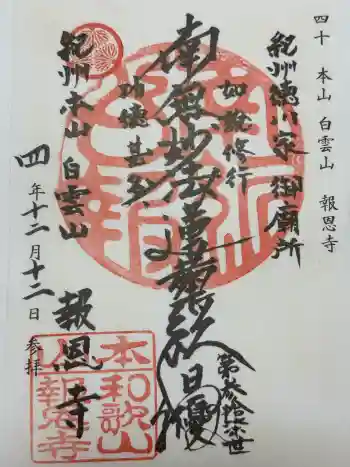 四十 本山 白雲山 報恩寺
紀州徳川家御廟所
如説修行
南無妙法蓮華経
功徳甚多
日優
紀州本山 白雲山 報恩寺
四年十二月十二日 参拝
本和歌山
報恩寺